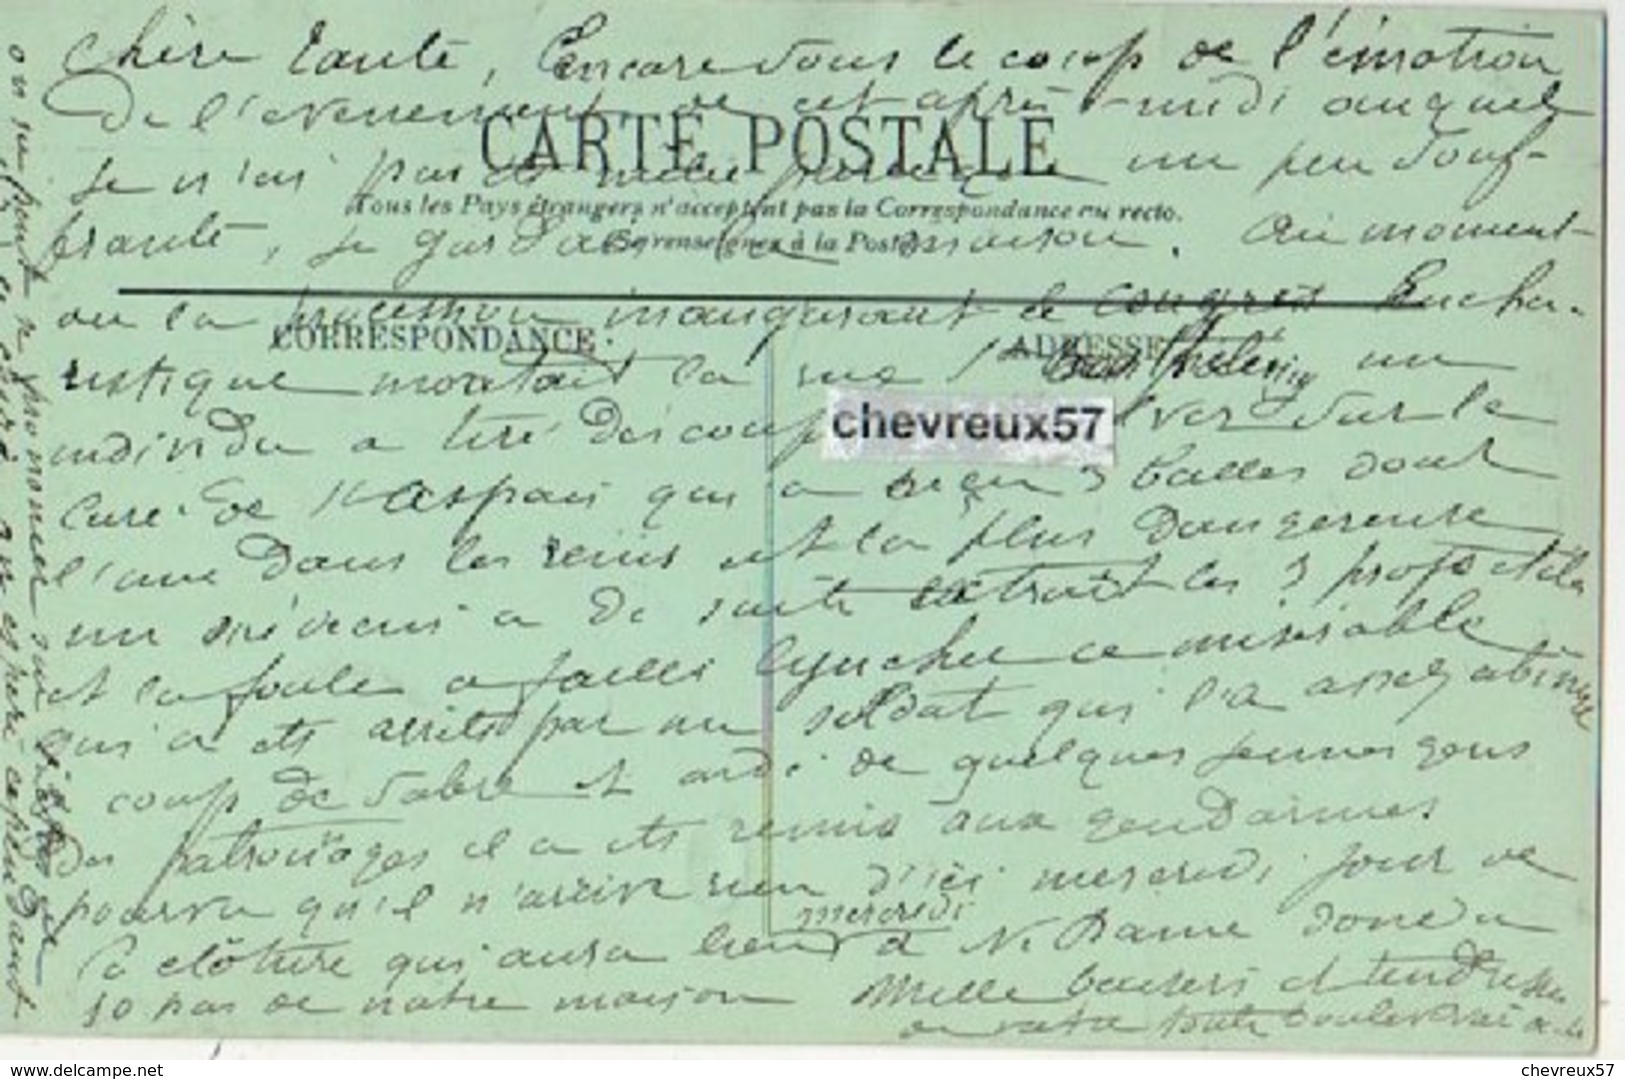 Chère Tante, Encore sous le coup de l'émotion
de l'evenement de cet après-midi auquel
je n'ai pas été parceque un peu souf-
frante, je gardais la maison. Au moment
CARTE POSTALE
Tous les Pays étrangers n'acceptent pas la Correspondance au recto.
Se renseigner à la Poste
ou la procession inaugurant le congrès Eucha-
CORRESPONDANCE
ADRESSE
ristique montait la rue un
individu a tiré des coups sur le
chevreux57
curé de qui a reçu 3 balles dont
l'une dans les reins est la plus dangereuse
un médecin a de suite extrait les 3 projectiles
et la foule a failli lyncher ce misérable
qui a été arrêté par un soldat qui l'a assez abimé
coup de sabre et aidé de quelques jeunes gens
des patronages il a été remis aux gendarmes
pourvu qu'il n'arrive rien d'ici mercredi jour de
mercredi
la clôture qui aura lieu à N. Dame donc a
50 pas de notre maison Mille baisers et tendresses
on votre toute
on ne peut se prononcer sur
espère cependant
delcampe.net
chevreux57